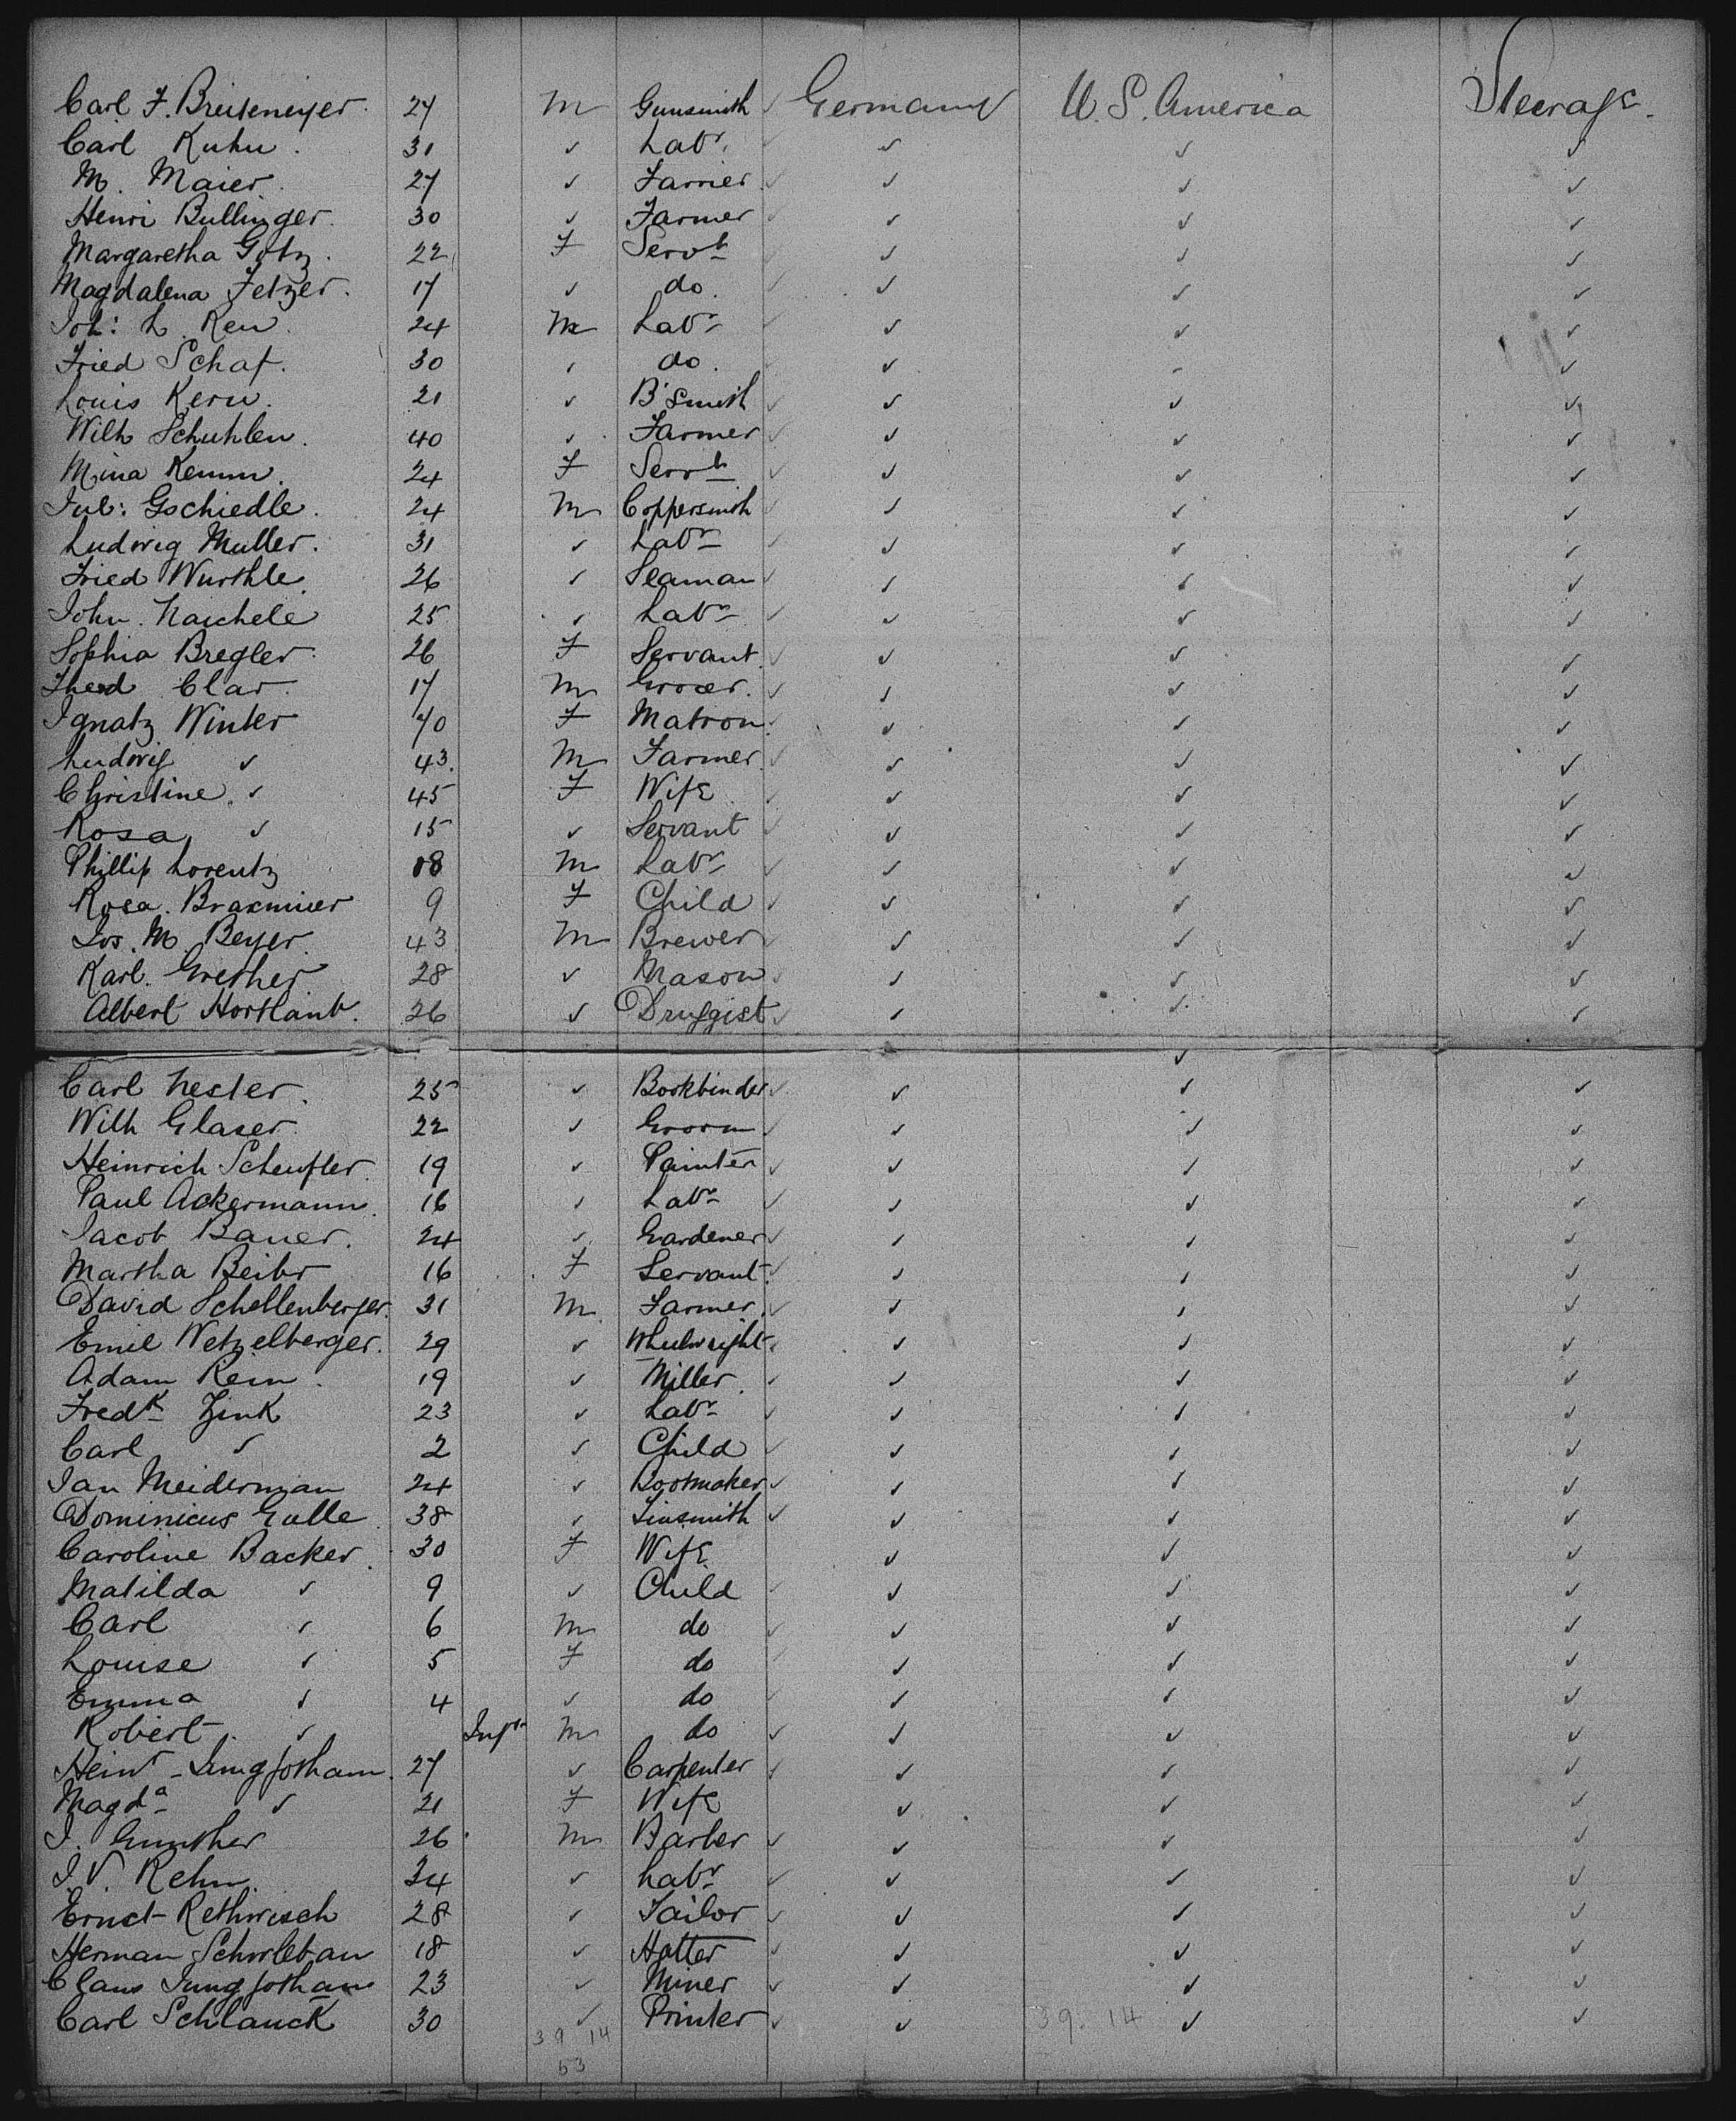 Carl F. Breitemeyer. 27 M Gunsmith ✓ Germany U. S. America Steerage.
Carl Kuhn. 31 ✓ Labr. ✓ ✓ ✓ ✓
M. Maier. 27 ✓ Farrier ✓ ✓ ✓ ✓
Henri Bullinger. 30 ✓ Farmer ✓ ✓ ✓ ✓
Margaretha Gotz. 22 F Servt ✓ ✓ ✓ ✓
Magdalena Fetzer. 17 ✓ do. ✓ ✓ ✓ ✓
Joh: L. Ren. 24 M Labr ✓ ✓ ✓ ✓
Fried Schaf. 30 ✓ do. ✓ ✓ ✓ ✓
Louis Kern. 21 ✓ B'smith ✓ ✓ ✓ ✓
Wilh Schuhlen. 40 ✓ Farmer ✓ ✓ ✓ ✓
Mina Kemm. 24 F Servt ✓ ✓ ✓ ✓
Jul: Gschiedle. 24 M Coppersmith ✓ ✓ ✓ ✓
Ludwig Muller. 31 ✓ Labr ✓ ✓ ✓ ✓
Fried Wurthle. 26 ✓ Seaman ✓ ✓ ✓ ✓
John. Naichele 25 ✓ Labr ✓ ✓ ✓ ✓
Sophia Bregler. 26 F Servant ✓ ✓ ✓ ✓
Theod Clar. 17 M Grocer. ✓ ✓ ✓ ✓
Ignatz Winter 70 F Matron ✓ ✓ ✓ ✓
Ludwig ✓ 43. M Farmer ✓ ✓ ✓ ✓
Christine ✓ 45 F Wife ✓ ✓ ✓ ✓
Rosa ✓ 15 ✓ Servant ✓ ✓ ✓ ✓
Phillip Lorentz 18 M Labr ✓ ✓ ✓ ✓
Rosa. Braxmier 9 F Child ✓ ✓ ✓ ✓
Jos. M. Beyer. 43 M Brewer ✓ ✓ ✓ ✓
Karl. Grether. 28 ✓ Mason ✓ ✓ ✓ ✓
Albert Hortlant. 26 ✓ Druggist ✓ ✓ ✓ ✓
✓
Carl Nester. 25 ✓ Bookbinder ✓ ✓ ✓ ✓
Wilh Glaser. 22 ✓ Groom ✓ ✓ ✓ ✓
Heinrich Scheufler. 19 ✓ Painter ✓ ✓ ✓ ✓
Paul Ackermann. 16 ✓ Labr ✓ ✓ ✓ ✓
Jacob Bauer. 24 ✓ Gardener ✓ ✓ ✓ ✓
Martha Beibr 16 F Servant ✓ ✓ ✓ ✓
David Schellenberger. 31 M Farmer. ✓ ✓ ✓ ✓
Emil Wetzelberger. 29 ✓ Wheelwright ✓ ✓ ✓ ✓
Adam Rein. 19 ✓ Miller. ✓ ✓ ✓ ✓
Fredk Zink 23 ✓ Labr ✓ ✓ ✓ ✓
Carl ✓ 2 ✓ Child ✓ ✓ ✓ ✓
Jan Meiderman 24 ✓ Bootmaker ✓ ✓ ✓ ✓
Dominicus Galle 38 ✓ Tinsmith ✓ ✓ ✓ ✓
Caroline Backer. 30 F Wife. ✓ ✓ ✓
Matilda ✓ 9 ✓ Child ✓ ✓ ✓ ✓
Carl ✓ 6 M do ✓ ✓ ✓ ✓
Louise ✓ 5 F do ✓ ✓ ✓ ✓
Emma ✓ 4 ✓ do ✓ ✓ ✓ ✓
Robert ✓ Inft M do ✓ ✓ ✓ ✓
Heinr Jungjotham. 27 ✓ Carpenter ✓ ✓ ✓ ✓
Magda ✓ 21 F Wife ✓ ✓ ✓
J. Gunther 26 M Barber ✓ ✓ ✓ ✓
J. V. Rehm. 34 ✓ Labr ✓ ✓ ✓ ✓
Ernst Rethwisch 28 ✓ Tailor ✓ ✓ ✓ ✓
Herman Schwleban 18 ✓ Hatter ✓ ✓ ✓ ✓
Claus Jungjothan 23 ✓ Miner ✓ ✓ ✓ ✓
Carl Schlauck 30 ✓ Printer ✓ ✓ ✓ ✓
39 14 39. 14
53